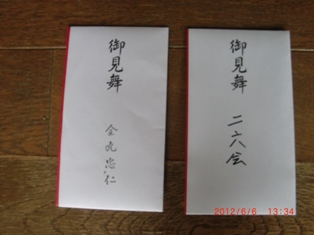 御見舞
金丸忠仁
御見舞
二六会
2012/6/6 13:34